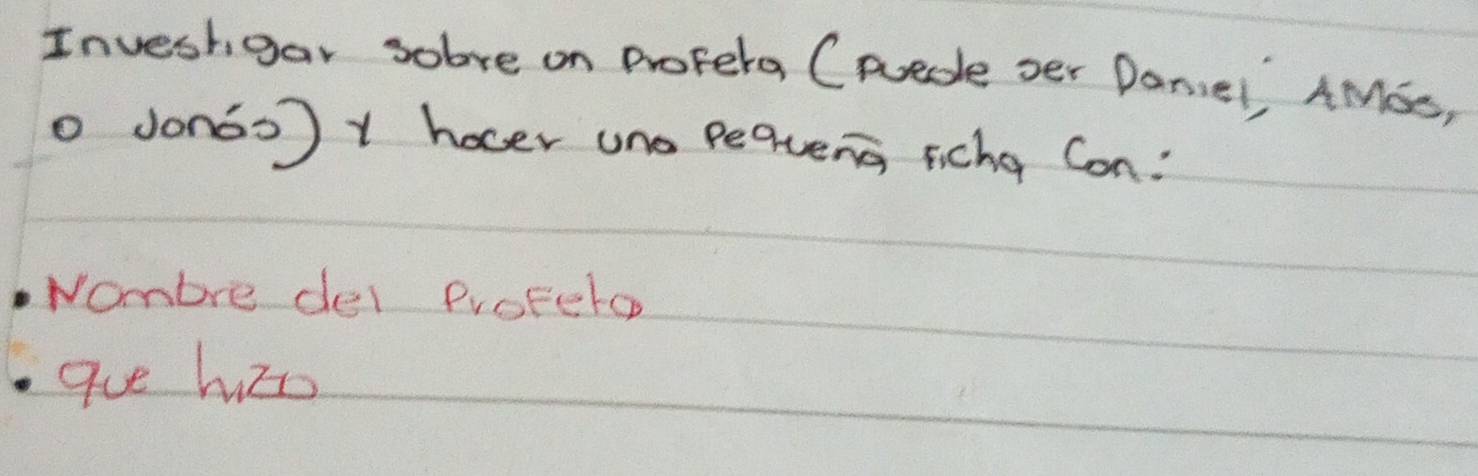 Investigar sobre un Profeta (Puede ser Daniel, AMós,
o Jonás) y hacer una Pequeña ficha Con:
• Nombre del Profeta
• que hizo